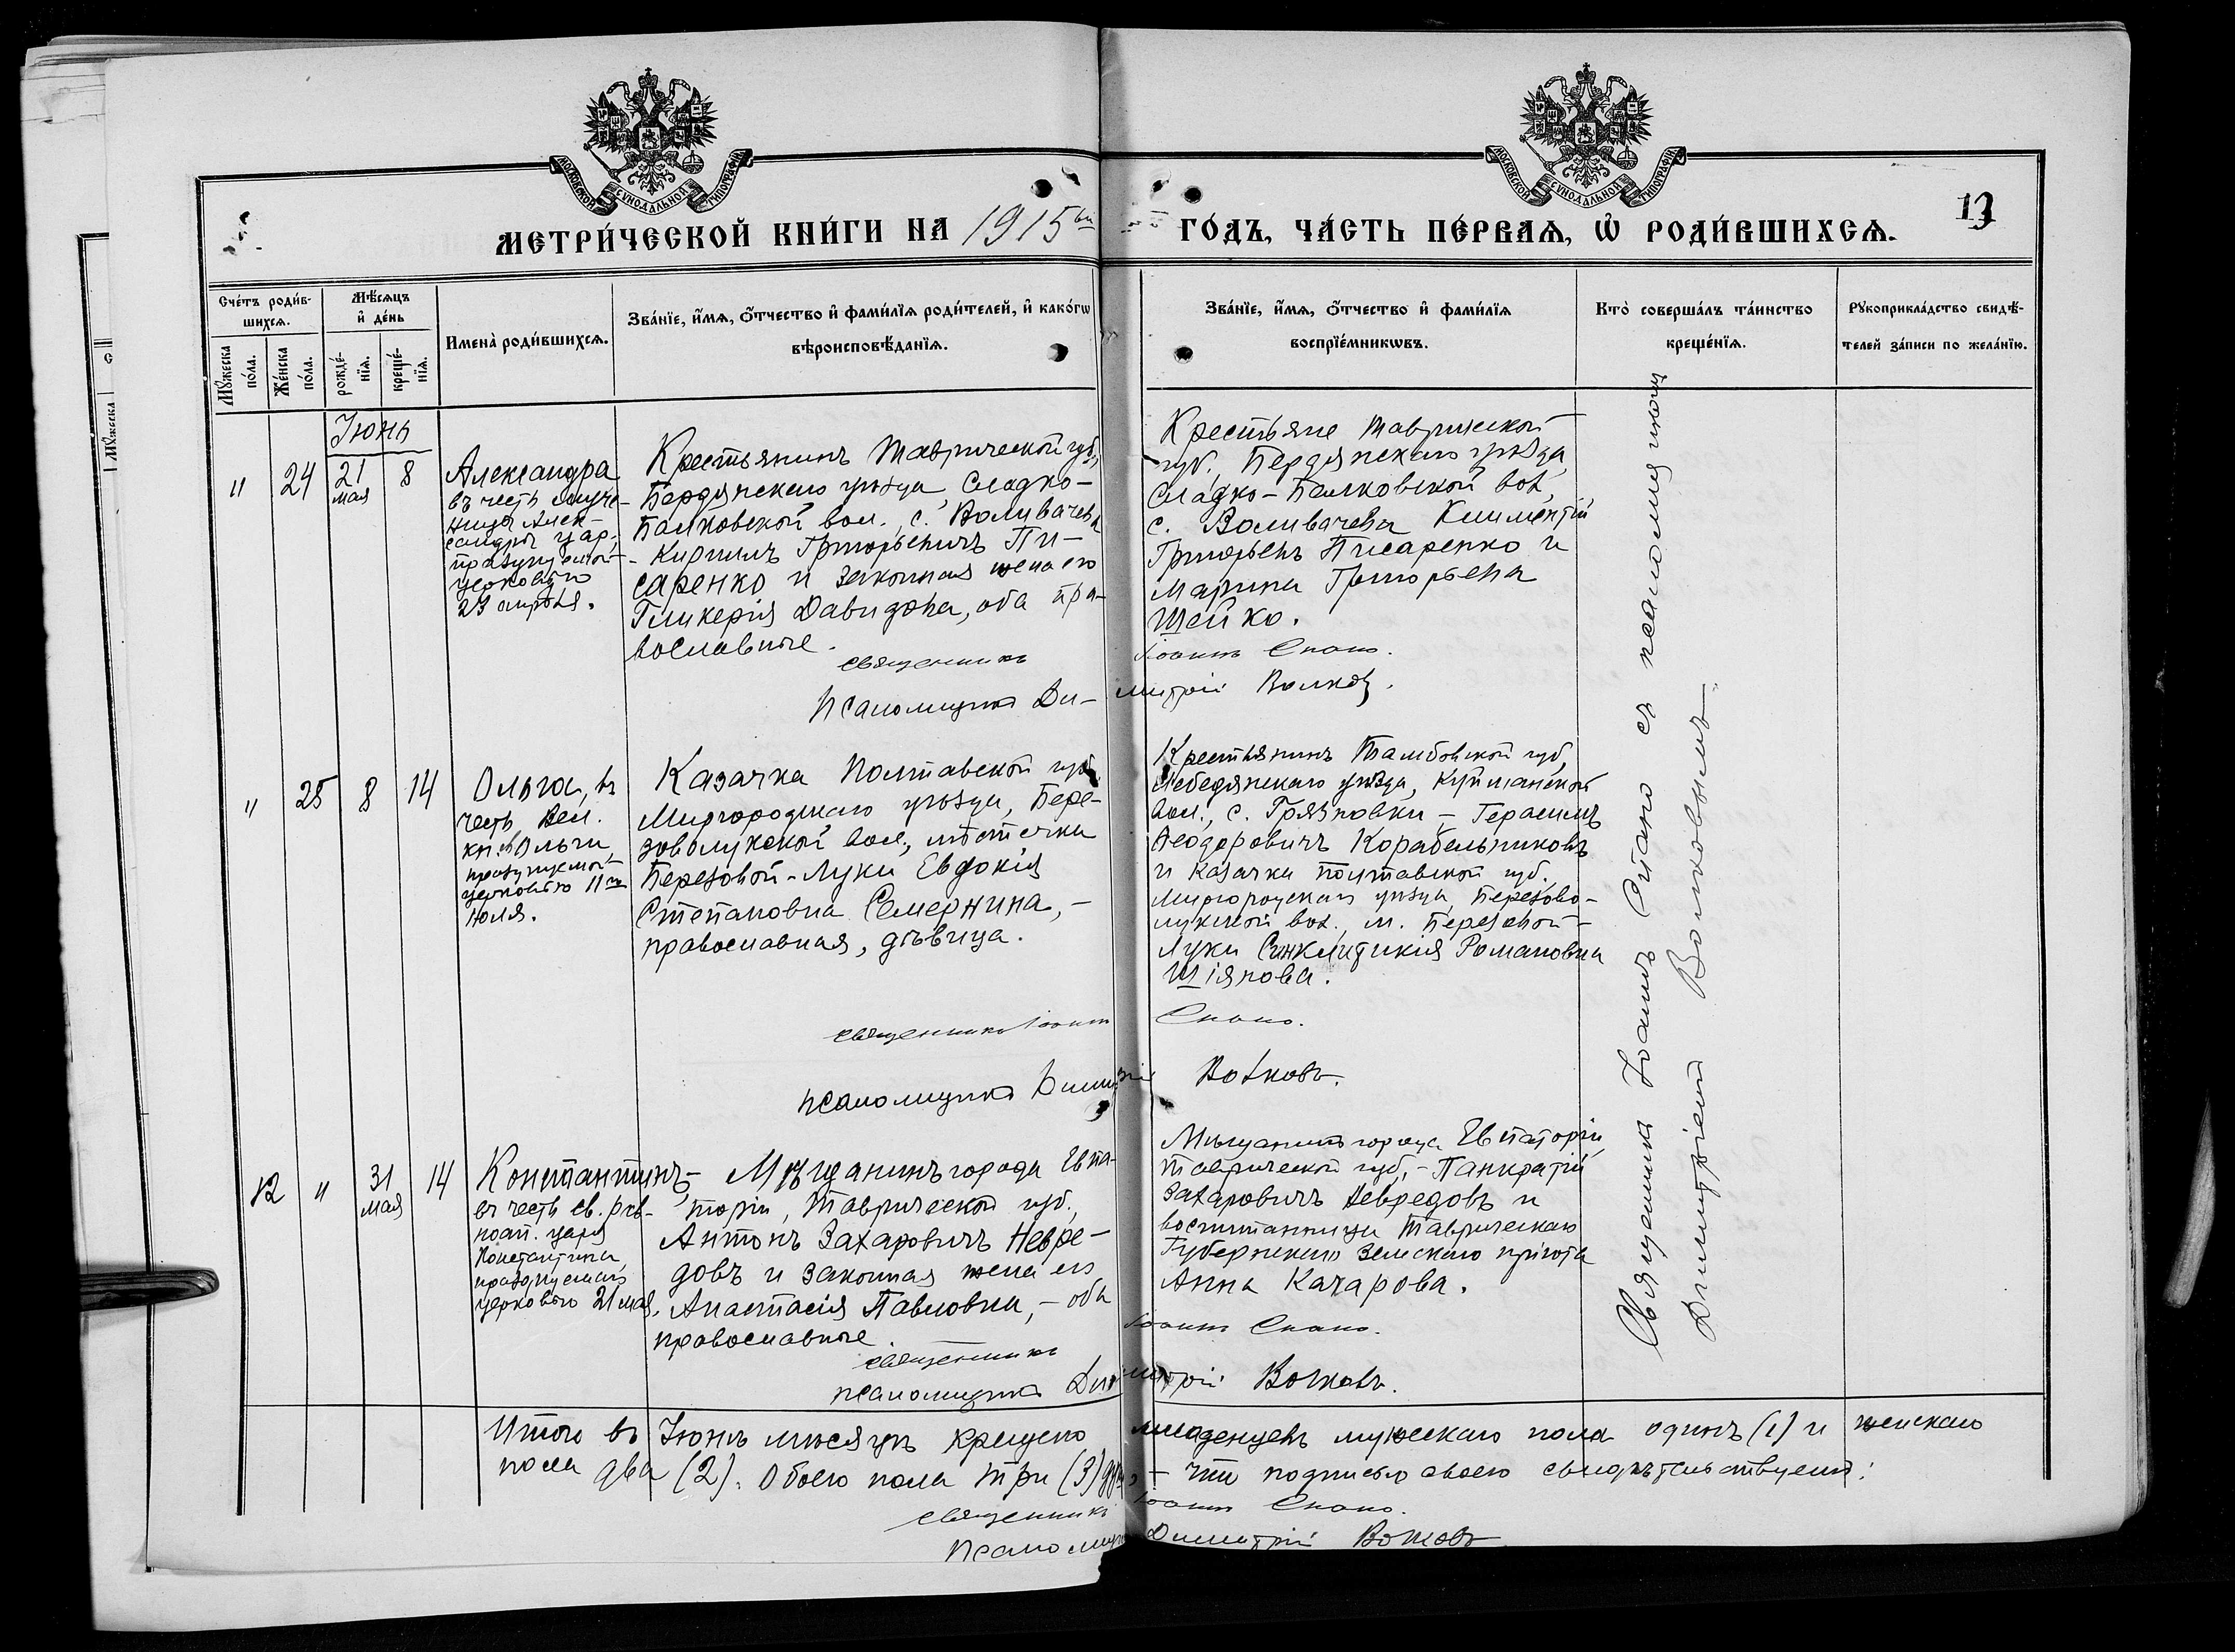 МОСКОВСКОЙ СУНОДАЛЬНОЙ ТИПОГРАФІИ
МОСКОВСКОЙ СУНОДАЛЬНОЙ ТИПОГРАФІИ
13
МЕТРИ́ЧЕСКОЙ КНИ́ГИ НА 1915ый ГО́ДЪ, ЧА́СТЬ ПЕ́РВАѦ, Ѡ҆ РОДИ́ВШИХСѦ.
Сче́тъ роди́в-
шихсѧ.
Мꙋ́жеска
по́ла.
Же́нска
по́ла.
Мѣ́сѧцъ
и҆ де́нь
рожде́-
нїѧ.
креще́-
нїѧ.
Имена̀ роди́вшихсѧ.
Зва́нїе, и҆́мѧ, ѻ҆́тчество и҆ фами́лїѧ роди́телей, и҆ како́гѡ
вѣроисповѣ́данїѧ.
Зва́нїе, и҆́мѧ, ѻ҆́тчество и҆ фами́лїѧ
воспрїе́мникѡвъ.
Кто̀ соверша́лъ та́инство
креще́нїѧ.
Рꙋкоприкла́дство свидѣ́-
телей за́писи по жела́нїю.
Іюнь
" 24 21 мая 8
Александра
въ честь муче-
ницы Алек-
сандры цар.
празднуемой
церковью
23 апрѣля.
Крестьянинъ Таврической губ.,
Бердянскаго уѣзда, Сладко-
Балковской вол., с. Воливачева
- Кириллъ Григорьевичъ Пи-
саренко и законная жена его
Гликерія Давидова, оба пра-
вославные.
Крестьяне Таврической
губ., Бердянскаго уѣзда,
Сладко-Балковской вол.,
с. Воливачева Климентій
Григорьевъ Писаренко и
Марина Григорьева
Шейко.
священникъ Іоаннъ Спано.
Псаломщикъ Димитрій Волковъ.
" 25 8 14
Ольга, въ
честь Вел.
кн. Ольги,
празднуемой
церковью 11го
іюля.
Казачка Полтавской губ.
Миргородскаго уѣзда, Бере-
зоволукской вол., мѣстечка
Березовой-Луки Евдокія
Степановна Семернина, -
православная, дѣвица.
Крестьянинъ Тамбовской губ,
Лебедянскаго уѣзда, Куйманской
вол., с. Грязновки - Герасимъ
Ѳеодоровичъ Корабельниковъ
и казачка Полтавской губ.
Миргородскаго уѣзда, Березово-
лукской вол., м. Березовой-
Луки Синклитикія Романовна
Шіянова.
священникъ Іоаннъ Спано.
псаломщикъ Димитрій Волковъ.
12 " 31 мая 14
Константинъ -
въ честь св. рав-
ноап. царя
Константина,
празднуемаго
церковью 21 мая.
Мѣщанинъ города Евпа-
торіи, Таврической губ.,
Антонъ Захаровичъ Невре-
довъ и законная жена его
Анастасія Павловна, - оба
православные.
Мѣщанинъ города Евпаторіи,
Таврической губ., - Панкратій
Захаровичъ Невредовъ и
воспитанница Таврическаго
Губернскаго Земскаго пріюта
Анна Качарова.
священникъ Іоаннъ Спано.
псаломщикъ Димитрій Волковъ.
Священникъ Іоаннъ Спано съ псаломщикомъ
Димитріемъ Волковымъ.
Итого въ Іюнѣ мѣсяцѣ крещено младенцевъ мужескаго пола одинъ (1) и женскаго
пола два (2). Обоего пола три (3) - что подписью своею свидѣтельствуемъ:
священникъ Іоаннъ Спано.
Псаломщикъ Димитрій Волковъ
Мꙋ́жеска